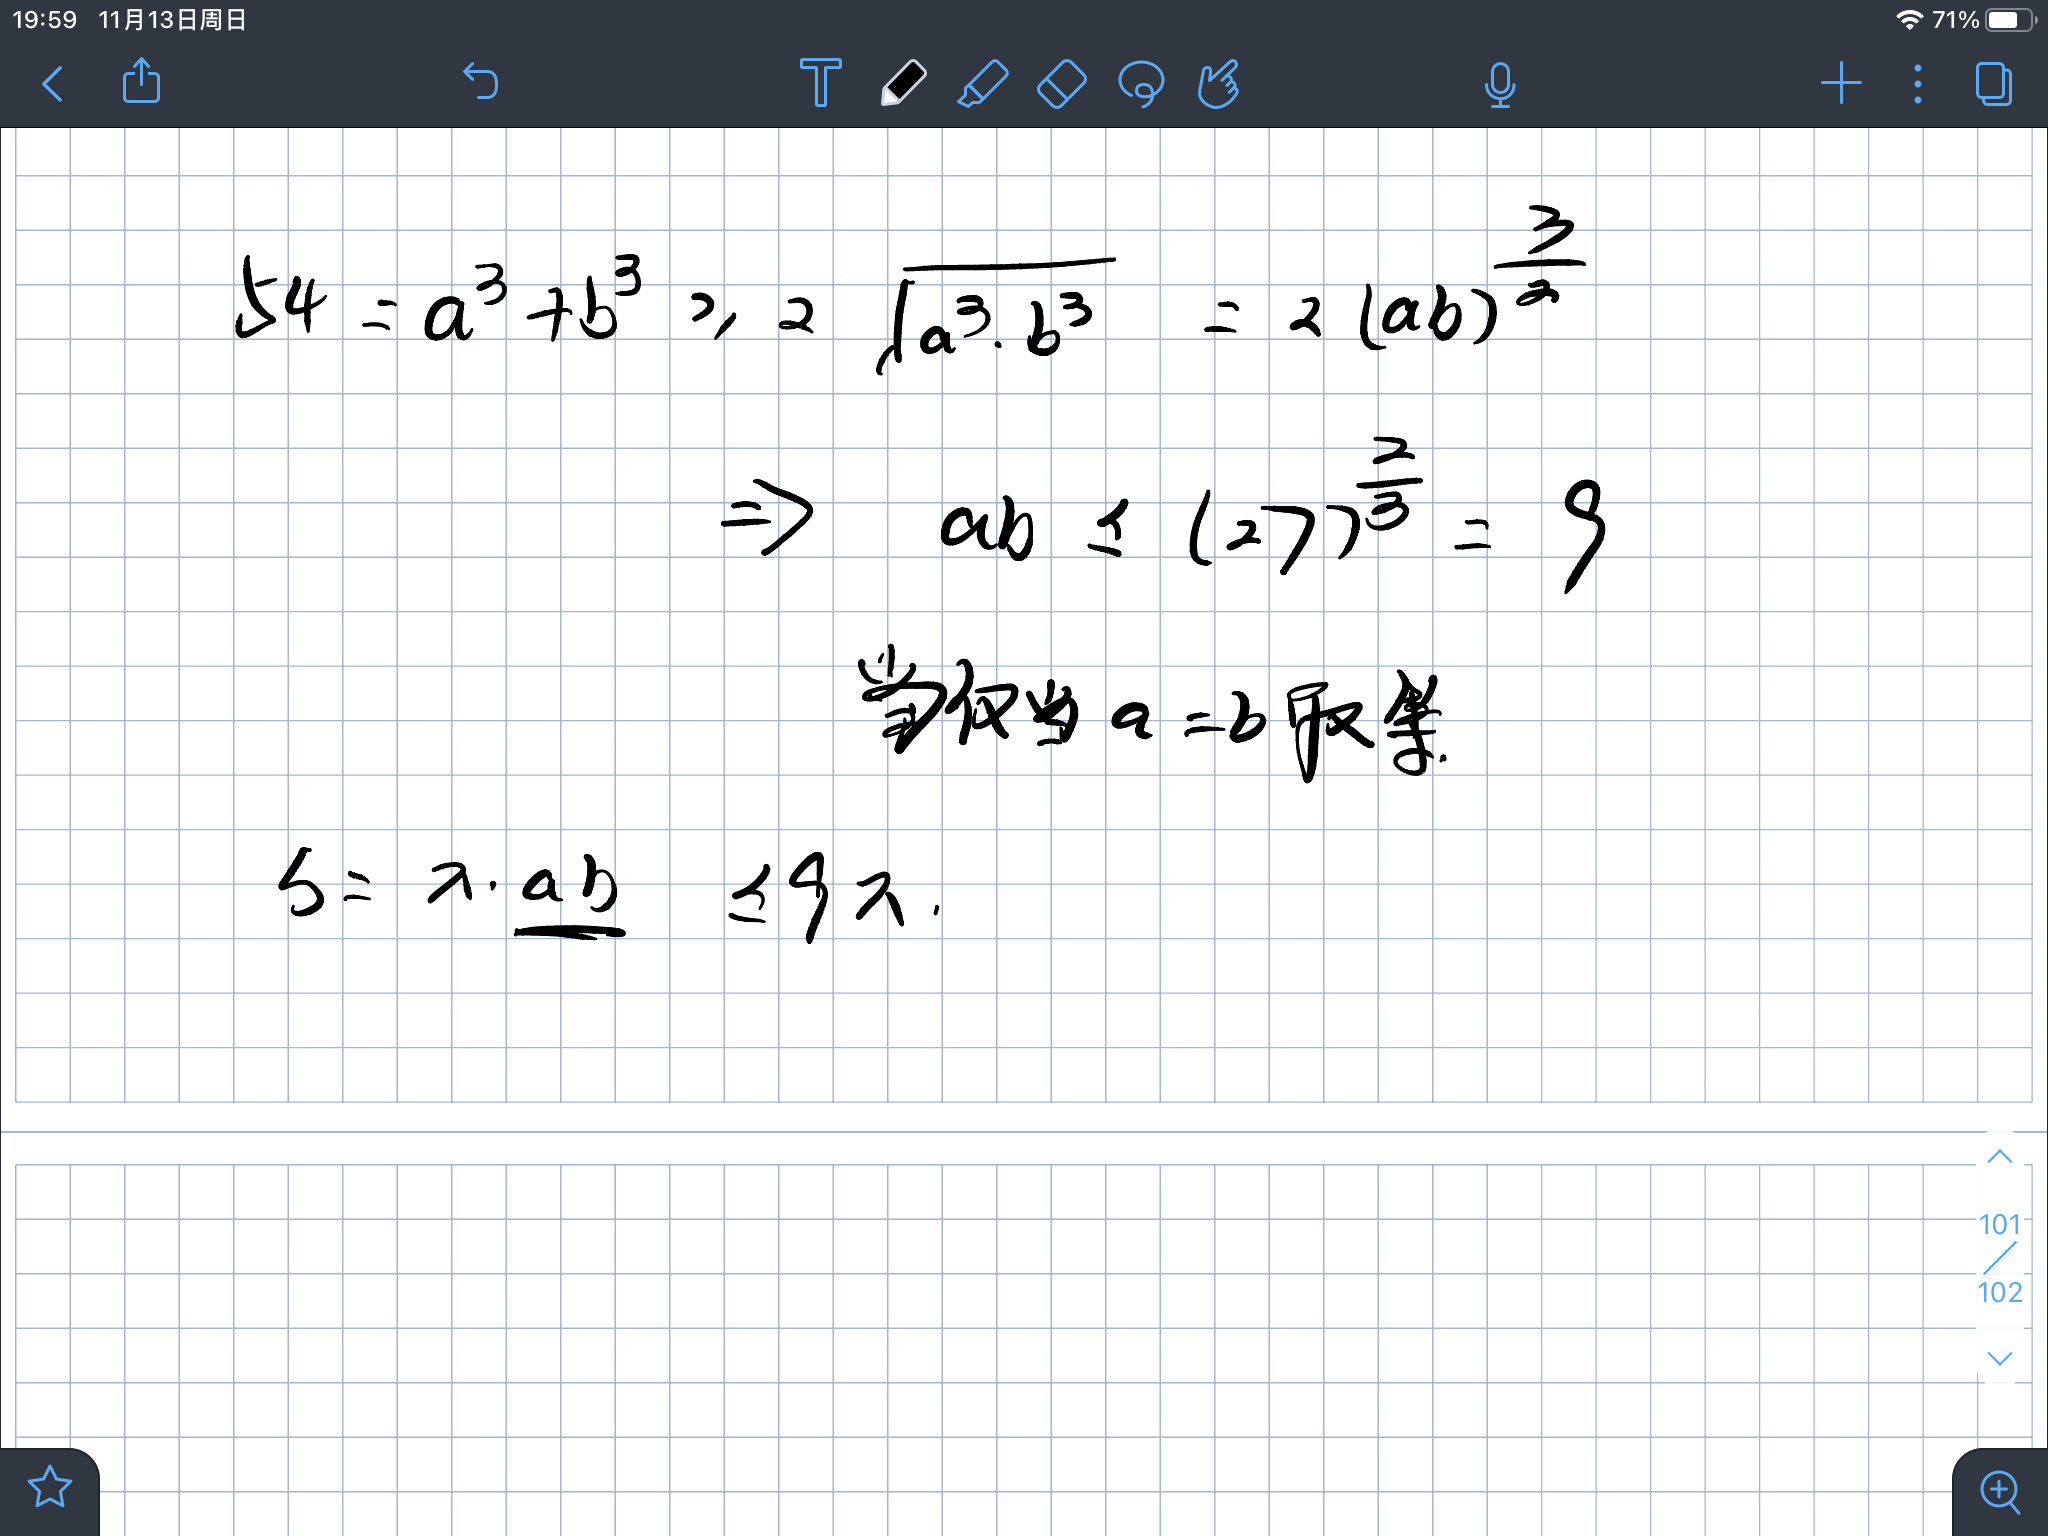 19:59 11月13日周日 71%
54 = a³ + b³ ≥ 2 √(a³·b³) = 2 (ab)^(3/2)
⇒ ab ≤ (27)^(2/3) = 9
当仅当 a = b 取等.
S = π·ab ≤ 9π.
101
102